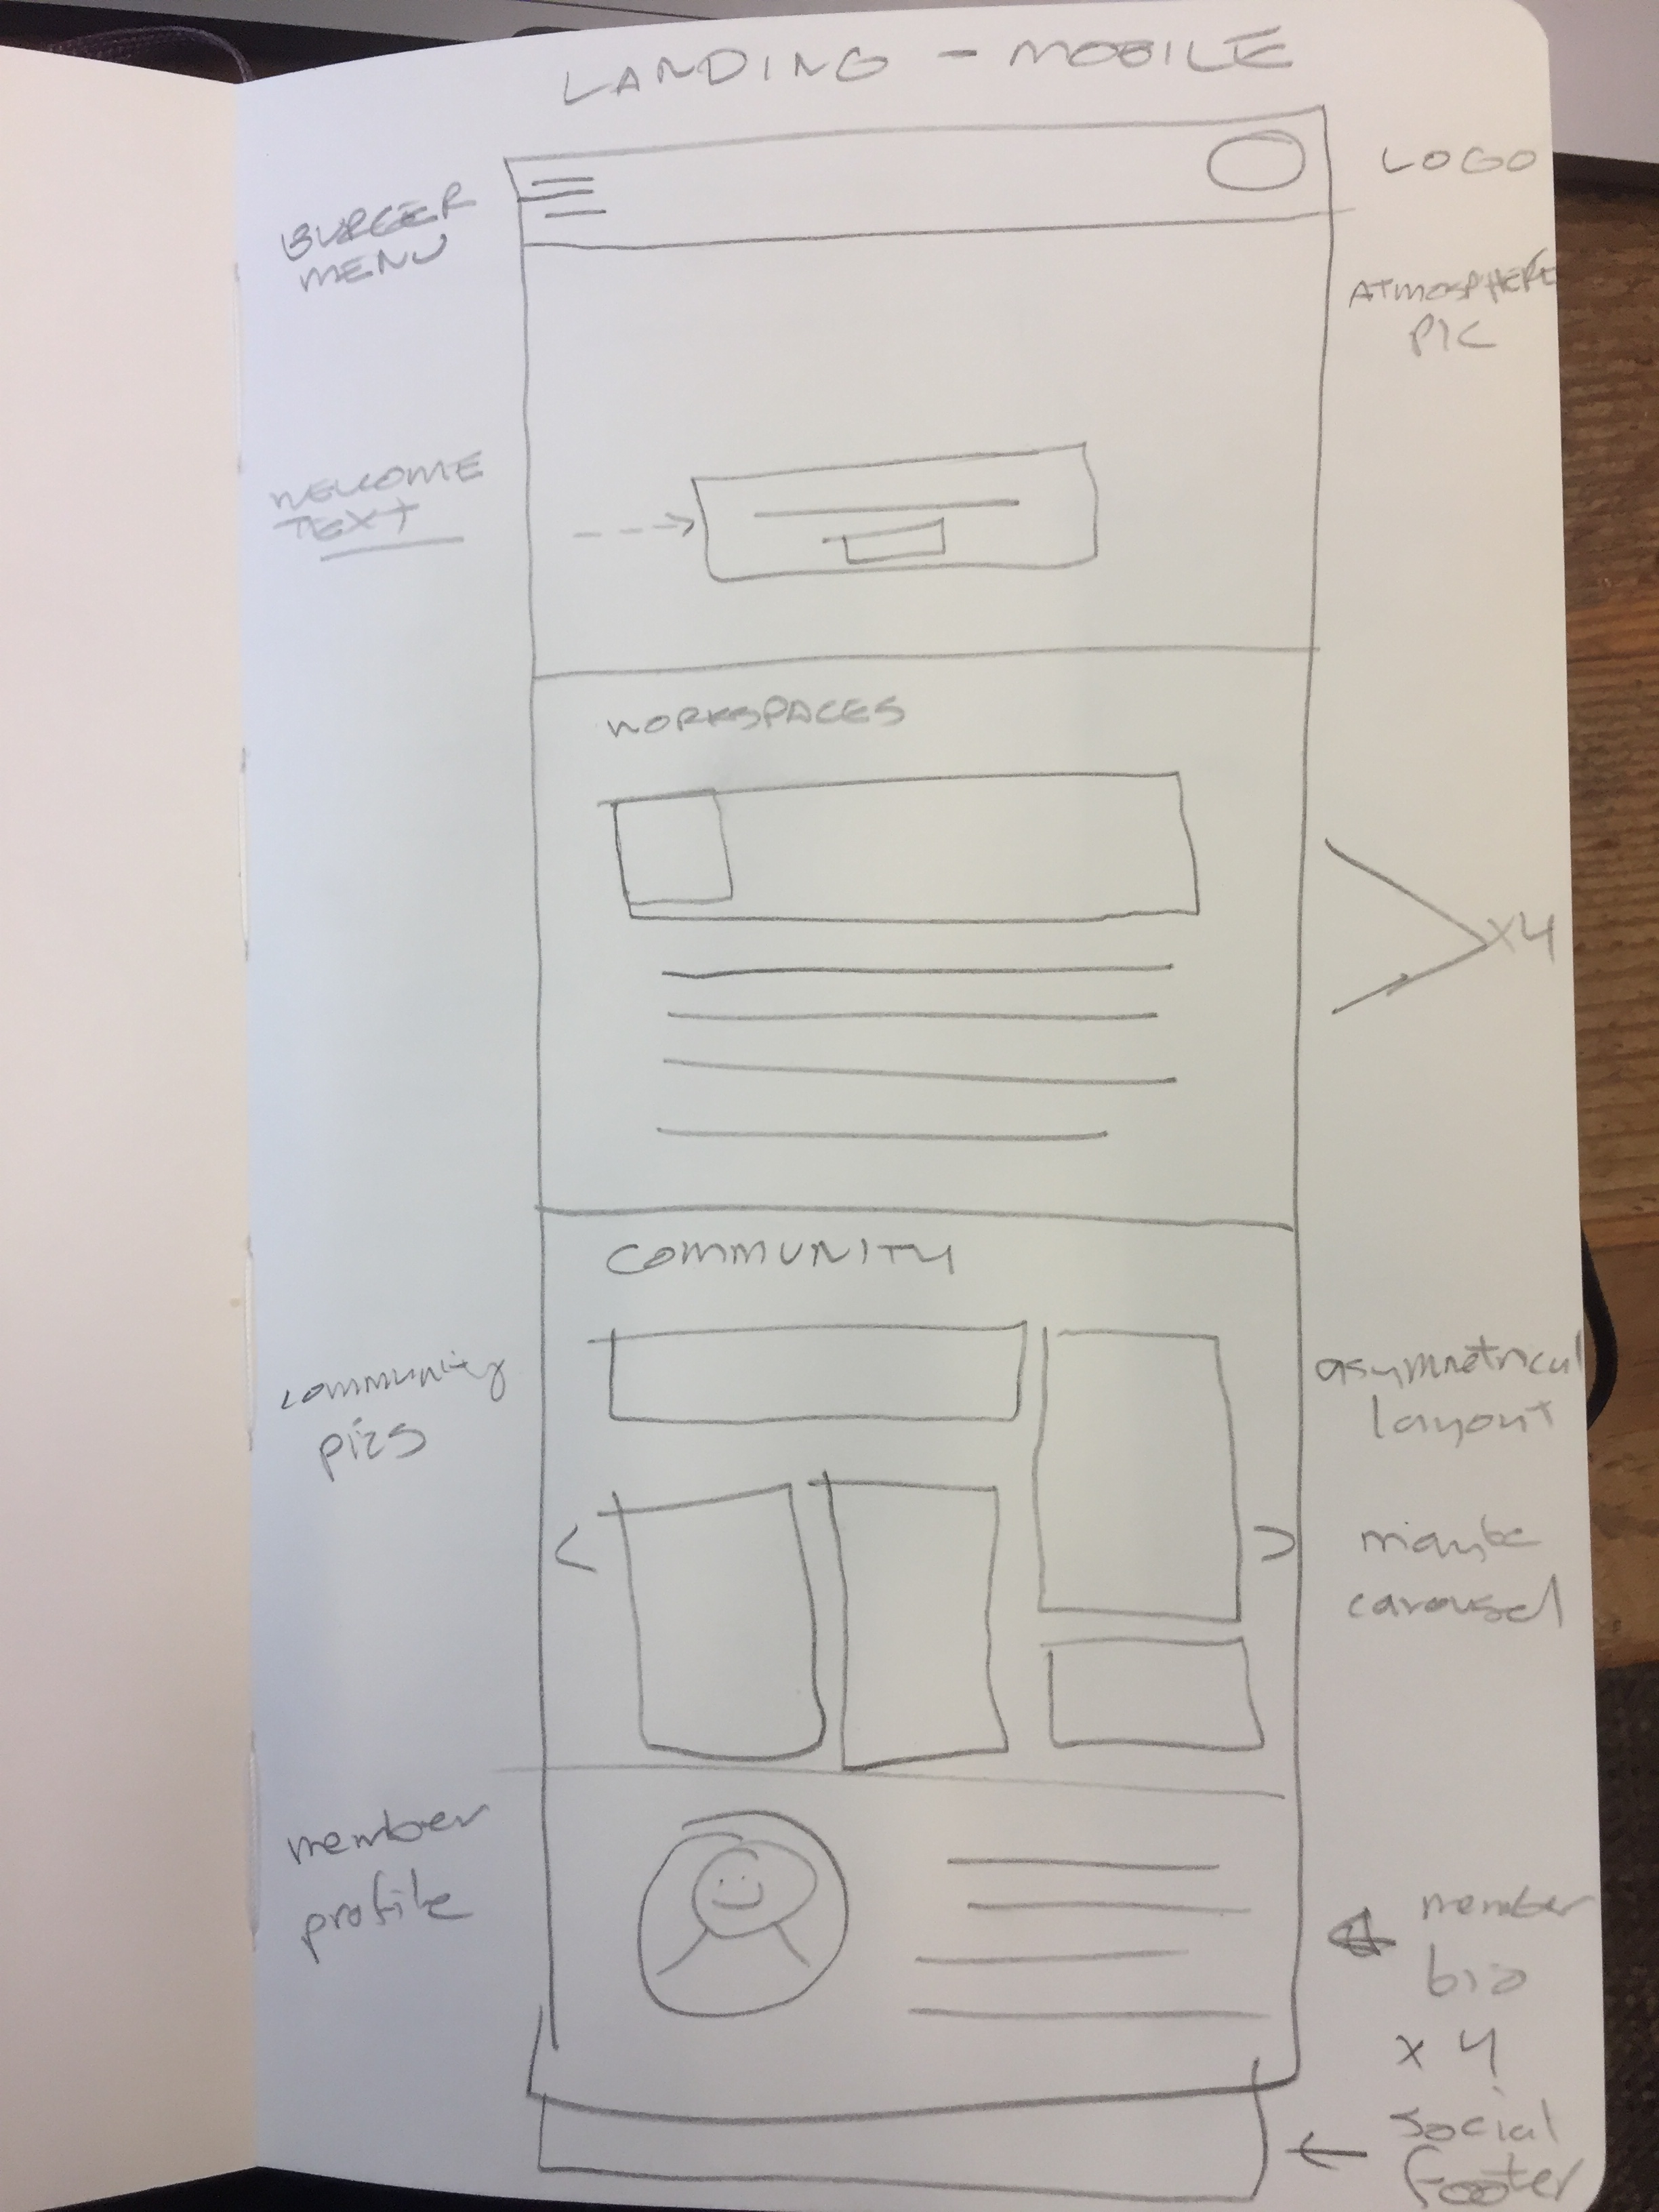 LANDING - MOBILE
LOGO
BURGER
MENU
ATMOSPHERE
PIC
WELCOME
TEXT
WORKSPACES
X4
COMMUNITY
community
pics
asymmetrical
layout
<
>
maybe
carousel
member
profile
member
bio
x 4
social
footer